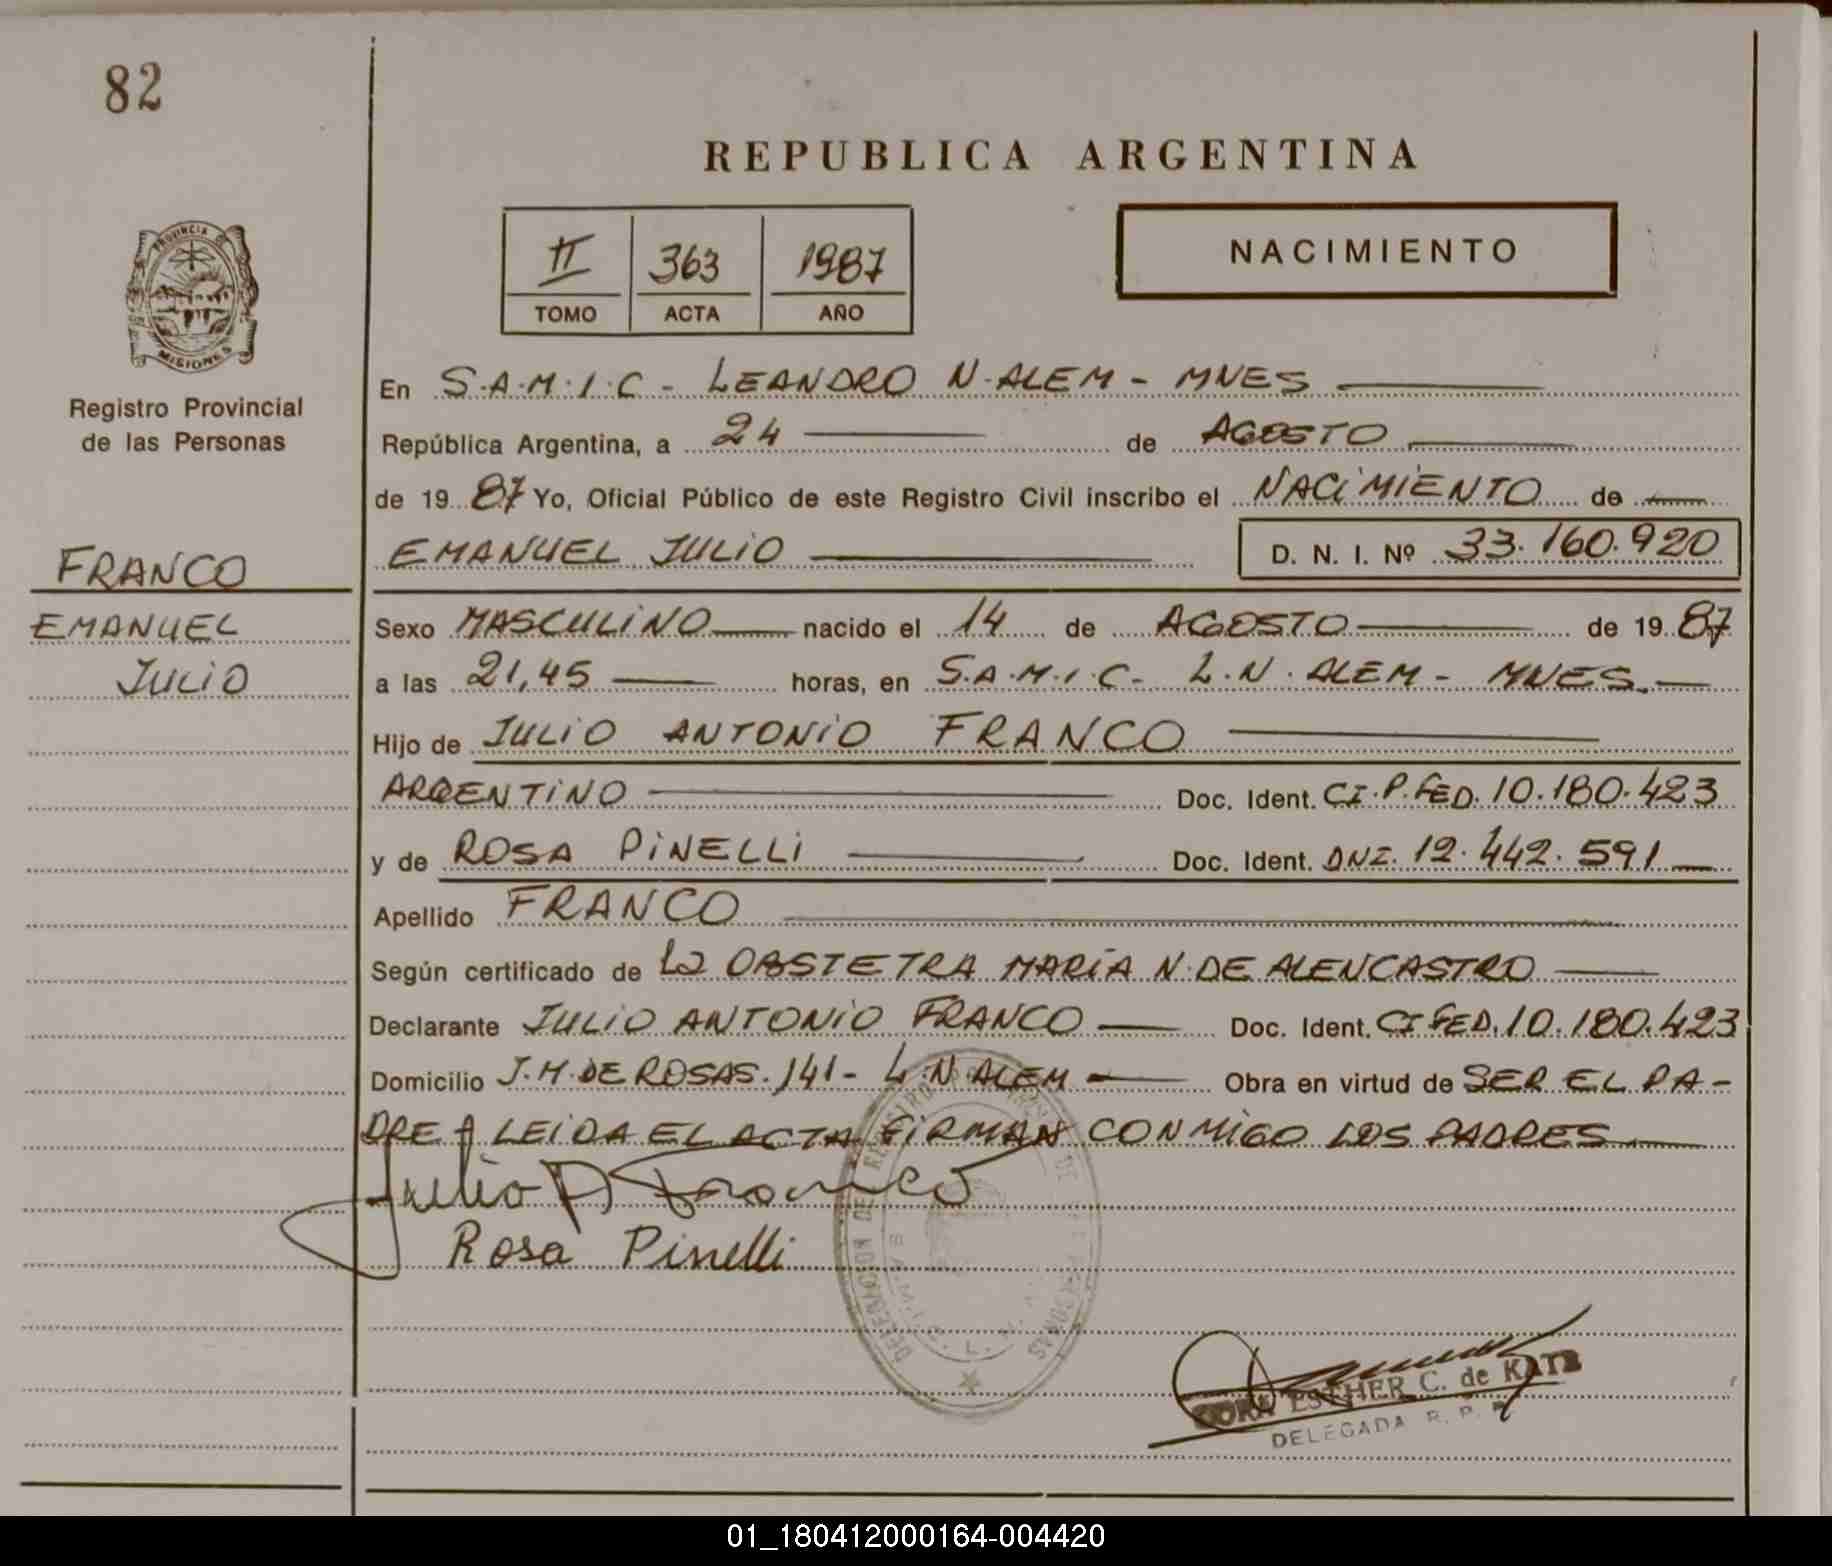 82
REPUBLICA ARGENTINA
II 363 1987
TOMO ACTA AÑO
NACIMIENTO
PROVINCIA DE
MISIONES
Registro Provincial
de las Personas
FRANCO
EMANUEL
JULIO
En S.A.M.I.C - LEANDRO N. ALEM - MNES
República Argentina, a 24 de AGOSTO
de 19 87 Yo, Oficial Público de este Registro Civil inscribo el NACIMIENTO de
EMANUEL JULIO D. N. I. Nº 33.160.920
Sexo MASCULINO nacido el 14 de AGOSTO de 19 87
a las 21,45 horas, en S.A.M.I.C - L.N. ALEM - MNES.
Hijo de JULIO ANTONIO FRANCO
ARGENTINO Doc. Ident. CI.P.FED. 10.180.423
y de ROSA PINELLI Doc. Ident. DNI. 12.442.591
Apellido FRANCO
Según certificado de La OBSTETRA MARÍA N. DE ALENCASTRO
Declarante JULIO ANTONIO FRANCO Doc. Ident. CI FED. 10.180.423
Domicilio J.M. DE ROSAS. 141 - L.N ALEM Obra en virtud de SER EL PA-
DRE LEIDA EL ACTA FIRMAN CONMIGO LOS PADRES
Julio A Franco
Rosa Pinelli
DELEGACION DE REGISTRO DE PERSONAS
ESTHER C. de KATZ
DELEGADA R. P.
01_180412000164-004420